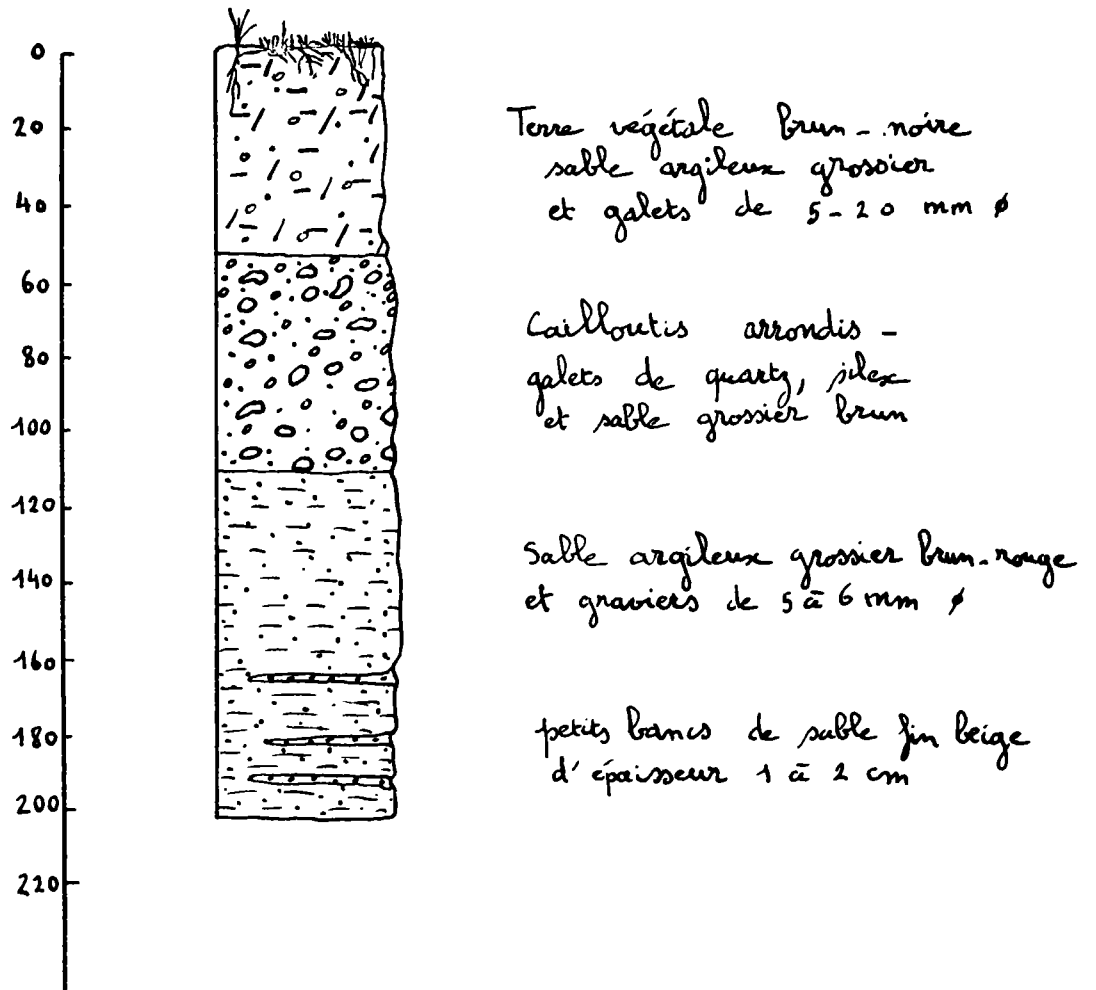 0
20
40
60
80
100
120
140
160
180
200
220
Terre végétale brun-noire
sable argileux grossier
et galets de 5-20 mm ø
Cailloutis arrondis -
galets de quartz, silex
et sable grossier brun
Sable argileux grossier brun-rouge
et graviers de 5 à 6 mm ø
petits bancs de sable fin beige
d'épaisseur 1 à 2 cm